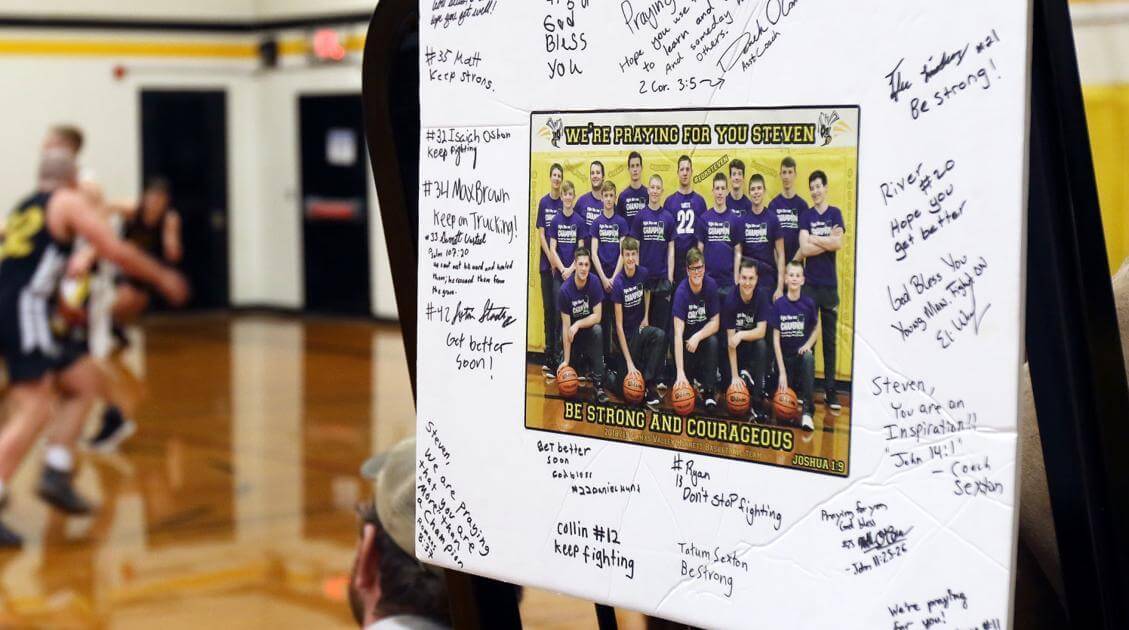 hope you get well!
God
Bless
you
Praying
Hope you
to learn and
And someday
Others.
2 Cor. 3:5
Asst Coach
#21
Be strong!
#35 Matt
Keep strong.
#32 Isaiah
keep fighting
#34 Max Brown
Keep on Trucking!
#33
Psalm 107:20
he sent out his word and healed
them; he rescued them from
the grave.
#42
Get better
soon!
WE'RE PRAYING FOR YOU STEVEN
22
CHAMPION
BE STRONG AND COURAGEOUS
JOSHUA 1:9
River
#20
Hope you
get better
God Bless You
Young Man. Fight on
Steven,
You are an
Inspiration!!
"John 14:1"
- Coach
Sexton
Steven,
We are praying
that you are
More than
a Champion
Get better
soon
God bless
#22 Daniel Hunt
# Ryan
13
Don't stop fighting
Collin #12
keep fighting
Tatum Sexton
Be Strong
Praying for you
God bless
-John 11:25-26
We're praying
for you!
#11